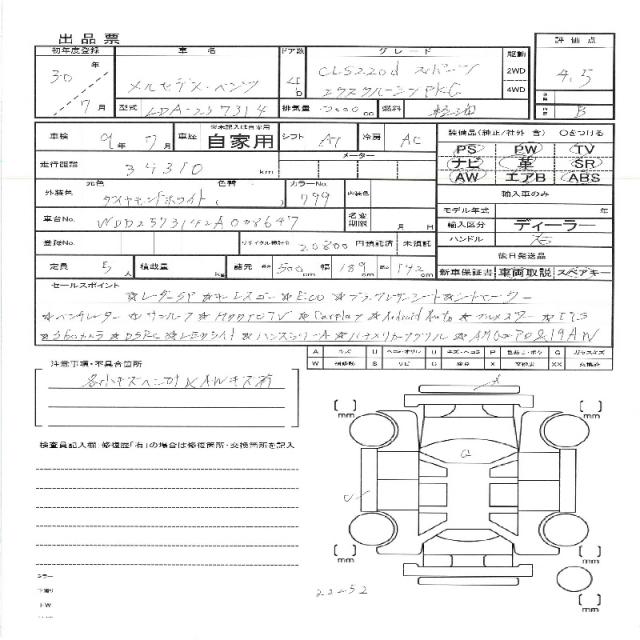 出品票
初年度登録 車名 ドア数 グレード 駆動 評価点
30年 7月 メルセデス・ベンツ CLS220d スポーツ 2WD 4WD 4.5
エクスクルーシブPKG B
型式 LDA-257314 排気量 燃料 軽油
車検 9年7月 車歴 自家用 シフト AT 冷房 AC 装備品(純正/社外 含) ○をつける
PS PW TV
走行距離 34310 km メーター ナビ 革 SR
AW エアB ABS
外装色 元色 ダイヤモンドホワイト 色替 ( ) カラーNo. 799 内装色 輸入車のみ
モデル年式 年
車台No. WDD2573142A008647 名変期限 月 日 輸入区分 ディーラー
ハンドル 右
登録No. リサイクル預託金 20800 円預託済 未預託 後日発送品
定員 5人 積載量 kg 諸元 長 500 cm 幅 189 cm 高 142 cm 新車保証書 車両取説 スペアキー
セールスポイント
☆レーダーSP ☆キーレスゴー ☆ECO ☆ブラックレザーシート ☆シートヒーター
☆ベンチレーター ☆サンルーフ ☆HDDナビTV ☆Carplay ☆Android Auto ☆ブルメスター ☆ETC
☆360カメラ ☆DSRC ☆LEDライト ☆ハンズフリーA ☆パナメリカーナグリル ☆AMG
A キズ U ヘコ・オウト
W X XX
注意事項・不具合箇所
各小キズヘコ有 AWキズ有
検査員記入欄:修復歴「有」の場合は修復箇所・交換箇所を記入
mm mm
A
G
U
mm mm
22-52
mm